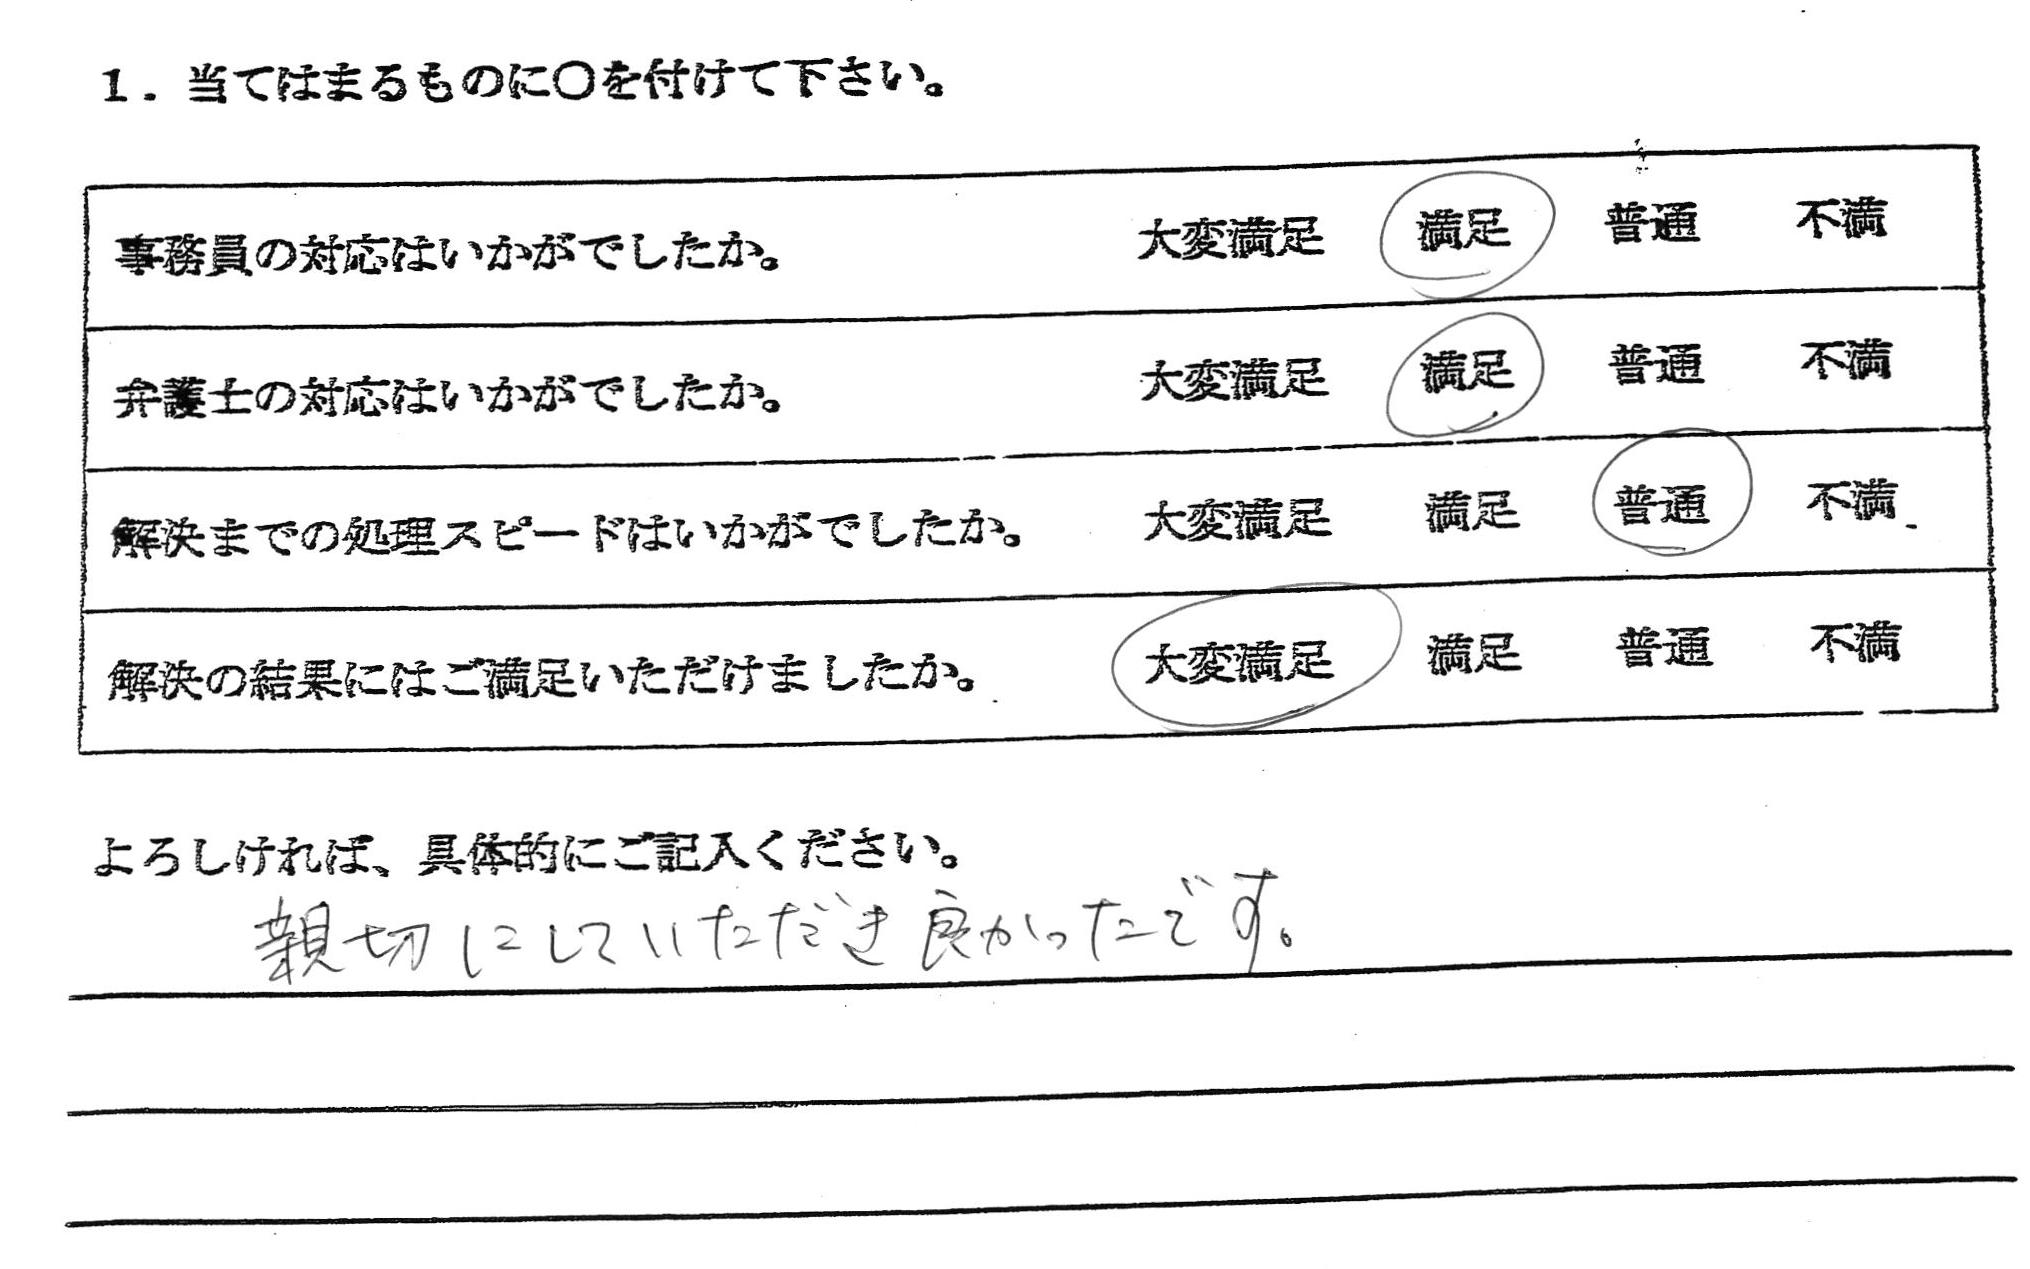 1. 当てはまるものに○を付けて下さい。
事務員の対応はいかがでしたか。 大変満足 満足 普通 不満
弁護士の対応はいかがでしたか。 大変満足 満足 普通 不満
解決までの処理スピードはいかがでしたか。 大変満足 満足 普通 不満
解決の結果にはご満足いただけましたか。 大変満足 満足 普通 不満
よろしければ、具体的にご記入ください。
親切にしていただき良かったです。